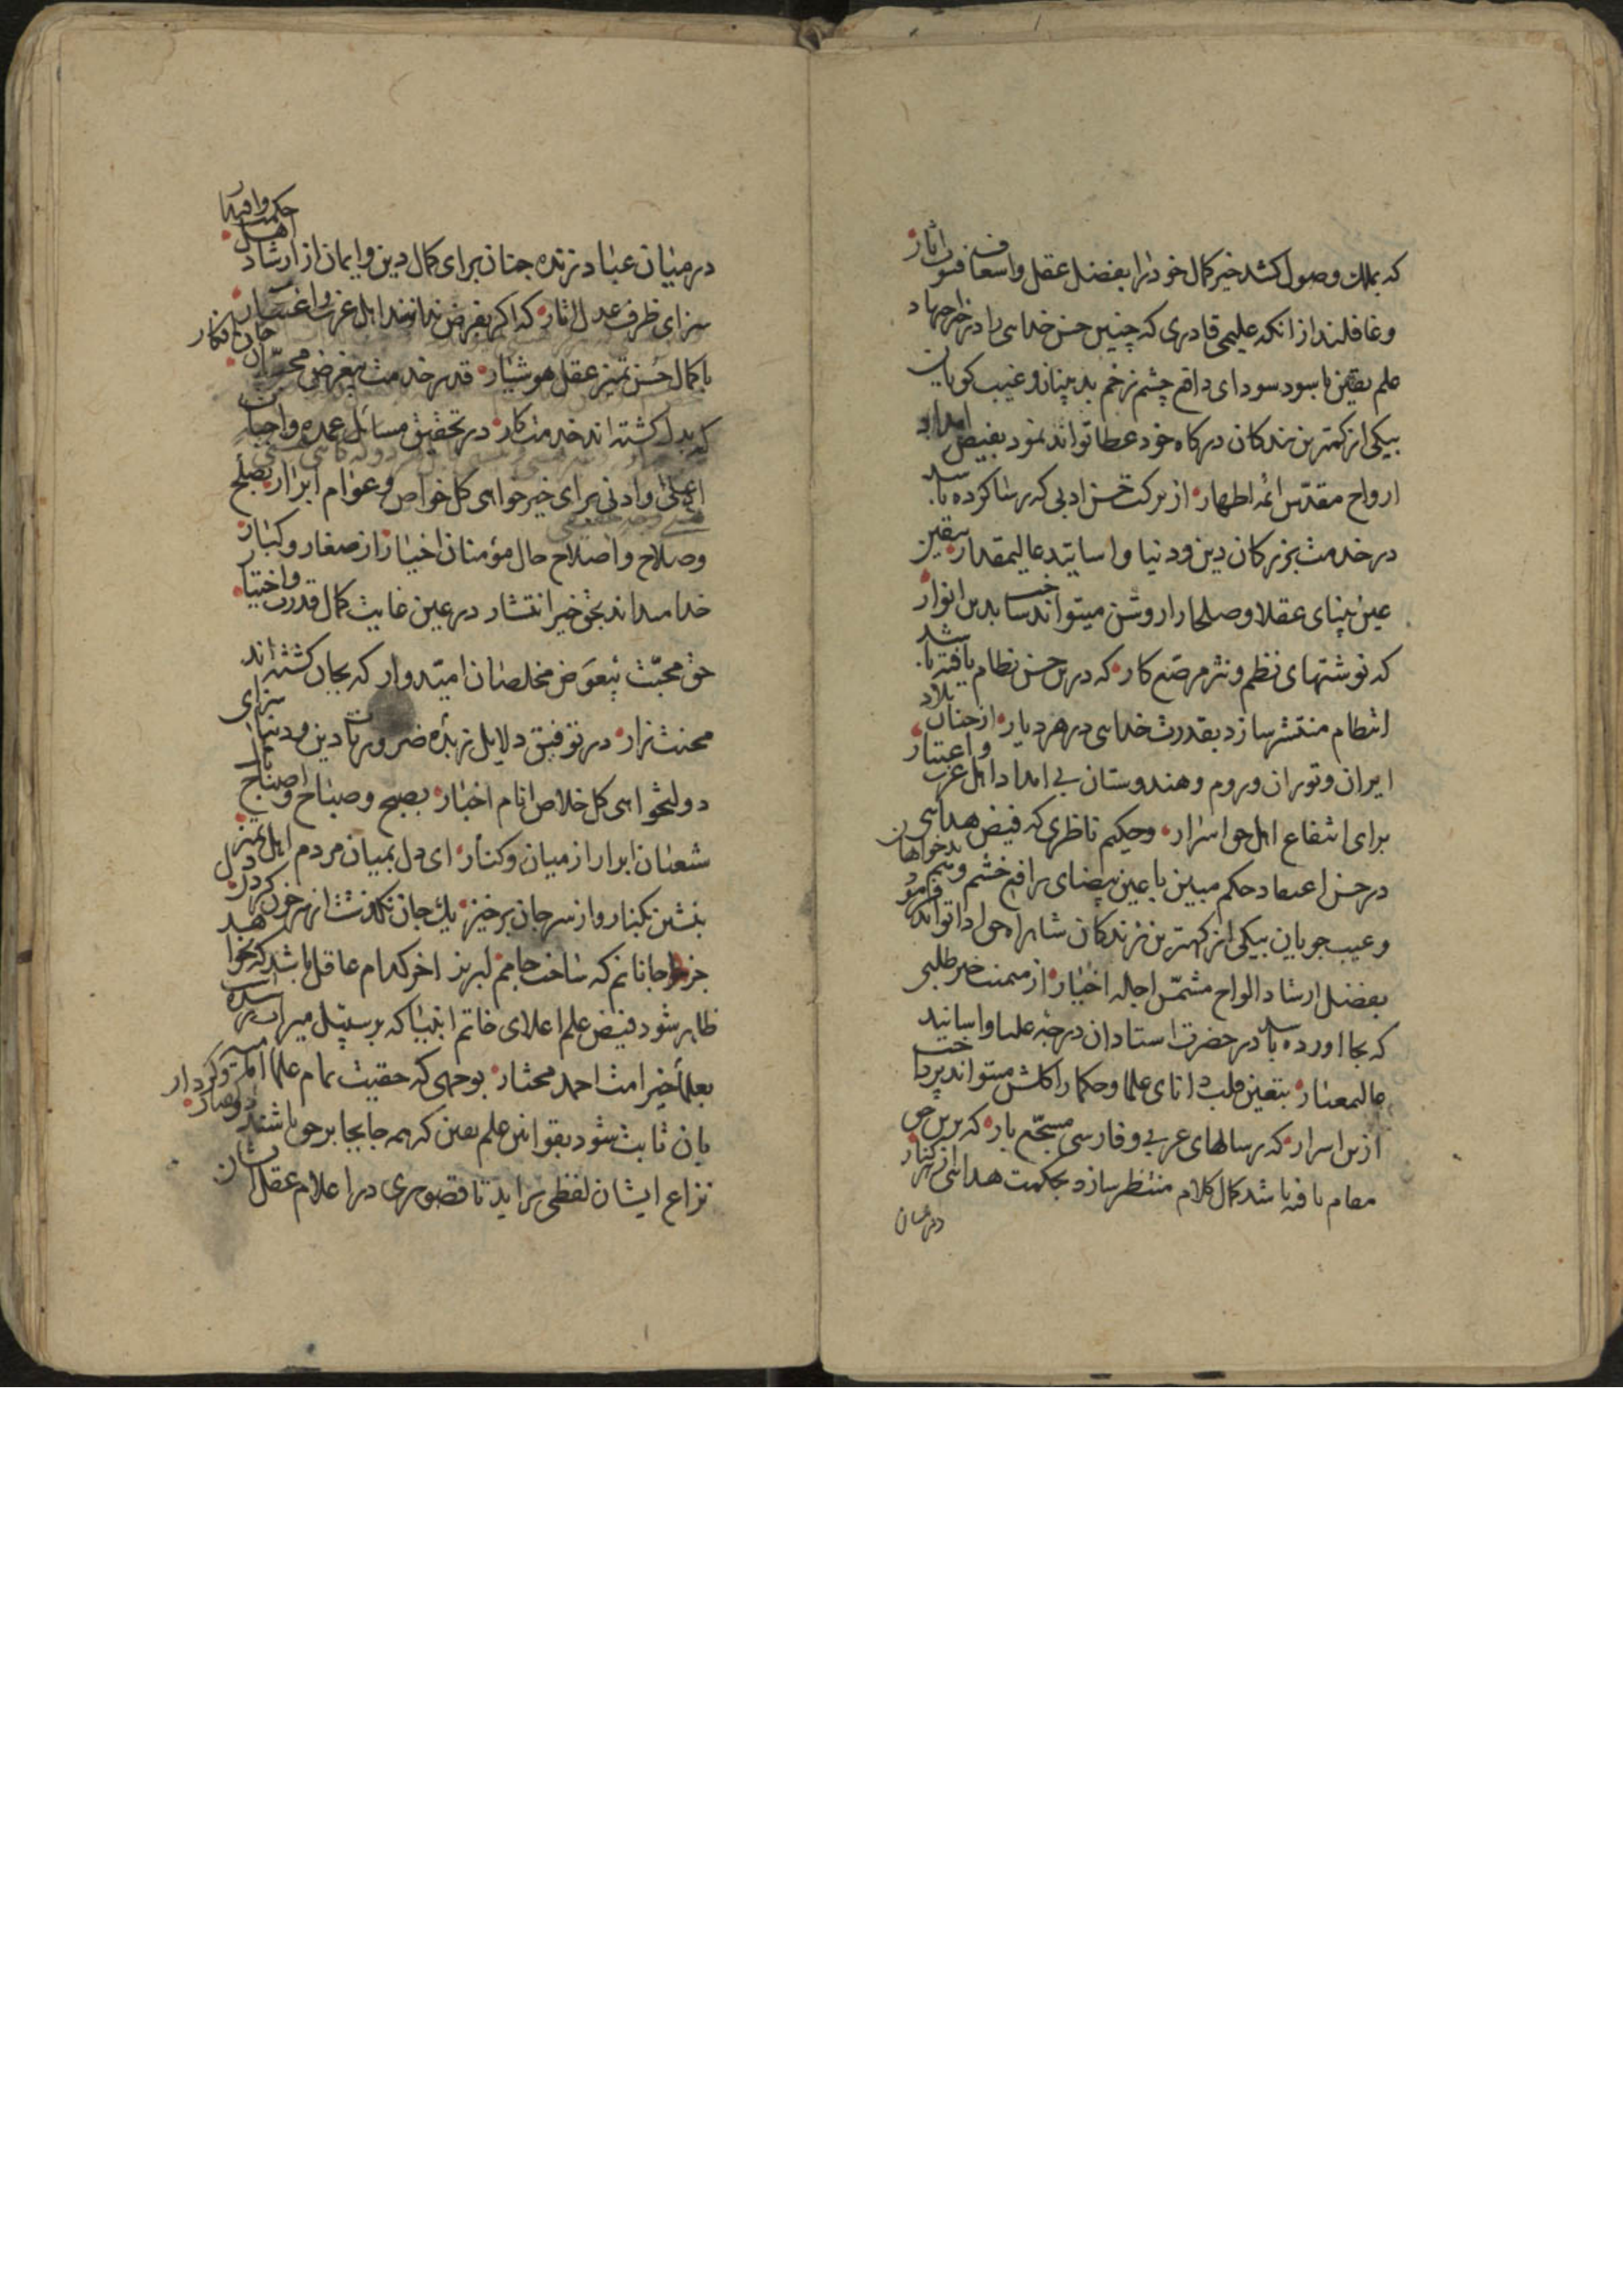 که بملک وصول کشد خیر کمال خود را بفضل عقل و اسعاف فنون اثار
و غافلند از انکه علیمی قادری که چنین حسن خداسی را در اخر جهاد
علم یقین با سود سودای دافع چشم زخم بد بینان و غیب کویان
بیکی از کمترین بندکان درکاه خود عطا تواند نمود بفیض امداد
ارواح مقدس ائمه اطهار از برکت حسن ادبی که رسا کرده باشد
در خدمت بزرکان دین و دنیا و اساتید عالیمقدار بیقین
عین بینای عقلا و صلحا را روشن میتواند ساخت بدین انوار
که نوشتهای نظم و نثر مرصع کار که درین حسن نظام یافته باشد
انتظام منتشر سازد بقدرت خداسی در هر دیار از جنان بلاد
ایران و توران و روم و هندوستان بی امداد اهل عزت و اعتبار
برای انتفاع اهل حق اسرار و حکیم ناظری که فیض هداسی
در حسن اعتقاد حکم مبین با عین بیضای رافع خشم و ستم بدخواهان
و عیب جویان بیکی از کهترین زندکان شاهراه حق ادا تواند فرمود
بفضل ارشاد الواح مشمس اجله اخیار از میمنت خیر طلبی
که بجا اورده باشد در حضرت استادان درجه علیا و اسانید
عالیمعنار بتعین قلب دانای علما و حکما را کلشن میتواند پرداخت
ازین اسرار که رسالهای عربی و فارسی مسجع بار که برین حق
مقام یافته باشد کمال کلام منتظر سازد بحکمت هداسی از هر کنار
در میان
در میان عباد زنده جنان برای کمال دین و ایمان از ارشاد اهل حکمت وافیه
سزای ظرف عدل اثار که اکر بغرض ندانند اهل عزت و اعتبار
با کمال حسن تمیز عقل هوشیار قدر خدمت بیغرض محبان جان فکار
که بدل کشته اند خدمت کار در تحقیق مسائل عمده واجبات
اعلی و ادنی برای خیر خواهی کل خواص و عوام ابرار بصلح
و صلاح و اصلاح حال مؤمنان اخیار از صغار و کبار
خدا میداند بحق خیر انتشار در عین غایت کمال قدرت و اختیار
حق محبت بیعوض مخلصان امیدوار که بجان کشته اند
محنت زار در توفیق دلایل زبده ضروریات دین و دنیا سزای
دولتخواهی کل خلاص انام اخبار بصبح و صباح و اصباح
شعنان ابرار از میان و کنار ای دل بمیان مردم اهل تمیز
بنشین بکنار و از سر جان برخیز یک جان نکذشت از سر خون کردن دل
جز جانانم که ساخت جامم لبریز اخر کدام عاقل باشد که نخواهد
ظاهر شود فیض علم اعلای خاتم انبیا که بر سبیل میراث رسیده است
بعلماء خیر امت احمد مختار بوجهی که حقیت تمام علماء
بان ثابت شود بقوانین علم یقین که همه جا بجا بر حق باشند
نزاع ایشان لفظی براید تا قصوری در اعلام عقل ایشان